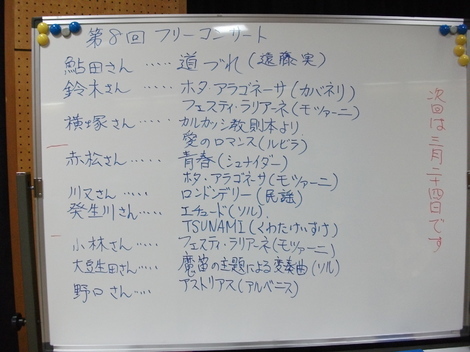 第8回 フリーコンサート
鮎田さん ‥‥‥ 道づれ(遠藤実)
鈴木さん ‥‥‥ ホタ・アラゴネーサ(カバネリ)
フェスティ・ラリアーネ(モッツァーニ)
横塚さん ‥‥‥ カルカッシ教則本より
愛のロマンス(ルビラ)
赤松さん ‥‥‥ 青春(シュナイダー)
ホタ・アラゴネーサ(モッツァーニ)
川又さん ‥‥‥ ロンドンデリー(民謡)
癸生川さん ‥‥‥ エチュード(ソル)
TSUNAMI(くわたけいすけ)
小林さん ‥‥‥ フェスティ・ラリアーネ(モッツァーニ)
大豆生田さん ‥‥‥ 魔笛の主題による変奏曲(ソル)
野口さん ‥‥‥ アストリアス(アルベニス)
次回は三月二十四日です